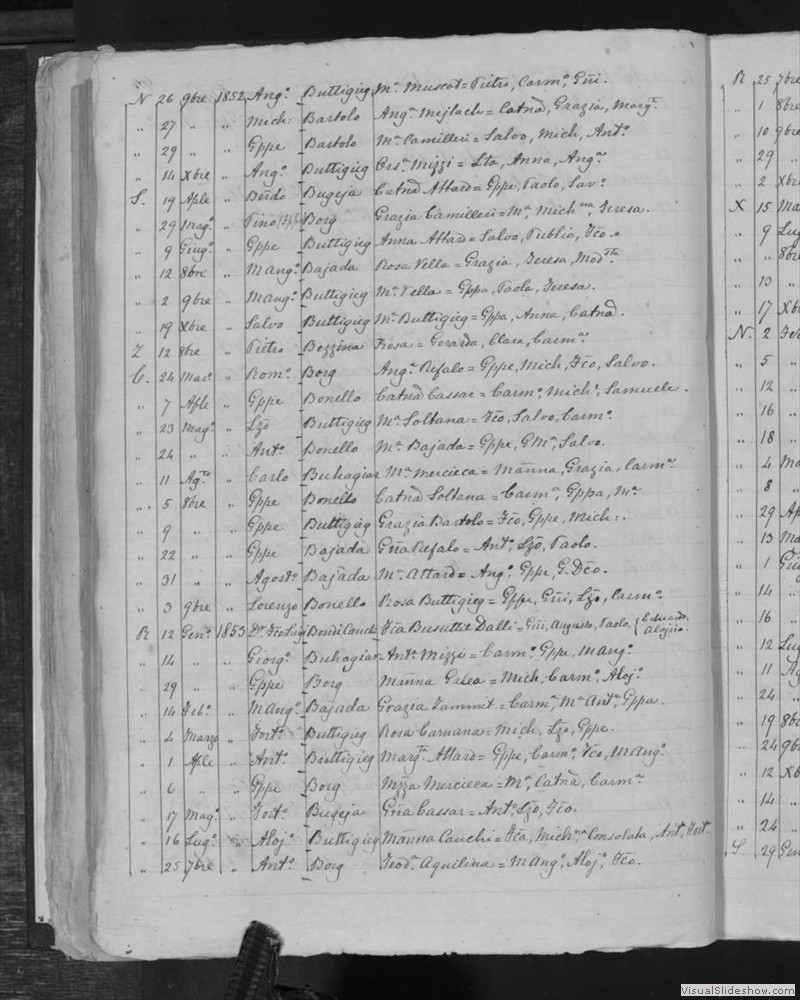 N 26 9bre 1852 Ang.o Buttigieg M.a Muscat = Pietro, Carm.o, Gñi.
" 27 " " Mich: Bartolo Ang.a Mejlach = Catnã, Grazia, Marg.ta
" 29 " " Gppe Bartolo M.a Camilleri = Salvo, Mich, Ant.o
" 14 Xbre " Ang.o Buttigieg Mizzi = Anna, Ang.a
S. 19 Aple " Bugeja Catnã Attard = Gppe, Paolo, Sav.o
" 29 Mag.o " Tino Borg Grazia Camilleri = M.a, Mich.na, Teresa.
" 9 Giug.o " Gppe Buttigieg Anna Attard = Salvo, Publio, Fco.
" 12 8bre " M Ang.o Bajada Rosa Vella = Grazia, Teresa, Mod.ta
" 2 9bre " M Ang.o Buttigieg M.a Vella = Gppa, Paola, Teresa.
" 19 Xbre " Salvo Buttigieg M.a Buttigieg = Gppa, Anna, Catnã.
Z 12 8bre " Pietro Bezzina Rosa = Gerarda, Clara, Carm.a
C. 24 Mar.o " Rom.o Borg Ang.a Refalo = Gppe, Mich, Fco, Salvo.
" 7 Aple " Gppe Bonello Catnã Cassar = Carm.o, Mich.l, Samuele.
" 23 Mag.o " Lzo Buttigieg M.a Soltana = Fco, Salvo, Carm.o
" 24 " " Ant.o Bonello M.a Bajada = Gppe, GM.a, Salvo.
" 11 Ag.to " Carlo Buhagiar M.a Mercieca = Mãnna, Grazia, Carm.a
" 5 8bre " Gppe Bonello Catnã Soltana = Carm.a, Gppa, M.a
" 9 " " Gppe Buttigieg Grazia Bartolo = Fco, Gppe, Mich:.
" 22 " " Gppe Bajada Gña Refalo = Ant.o, Lzo, Paolo.
" 31 " " Agost.o Bajada M.a Attard = Ang.o, Gppe, G. Dco.
" 3 9bre " Lorenzo Bonello Rosa Buttigieg = Gppe, Gñi, Lzo, Carm.o
R 12 Gen.o 1853 D.r Fco Luig Fca Busuttil Dalli = Gñi, Augusto, Paolo, { Eduardo, Alojsio.
" 14 " " Giorg.o Buhagiar Ant.a Mizzi = Carm.o, Gppe, M Ang.o
" 29 " " Gppe Borg Mãnna Galea = Mich, Carm.o, Aloj.o
" 14 Feb.o " M Ang.o Bajada Grazia Zammit = Carm.a, M.a Ant.a, Gppa.
" 4 Marzo " Fort.o Buttigieg Rosa Caruana = Mich, Lzo, Gppe.
" 1 Aple " Ant.o Buttigieg Marg.ta Attard = Gppe, Carm.o, Fco, M Ang.o
" 6 " " Gppe Borg Mercieca = M.a, Catnã, Carm.a
" 17 Mag.o " Fort.o Bugeja Gña Cassar = Ant.o, Lzo, Fco.
" 16 Lug.o " Aloj.o Buttigieg Mãnna Cauchi = Fca, Mich.na, Consolata, Ant.a, Fort.
" 25 7bre " Ant.o Borg Teod.a Aquilina = M Ang.o, Aloj.o, Fco.
R 25 7bre
" 1 8bre
" 10 9bre
" 29 "
" 2 Xbre
X 15 Ma
" 9 Lug
" " 8bre
" 13 "
" 17 Xb
N. 2 Feb
" 5 "
" 12 "
" 16 "
" 18 "
" 4 Ma
" 8 "
" 29 Ap
" 13 Ma
" 1 Giu
" 14 "
" 16 "
" 12 Lug
" 11 Ag
" 24 "
" 19 8b
" 24 9b
" 12 Xb
" 14 "
" 24 "
S. 29 Gen
VisualSlideshow.com